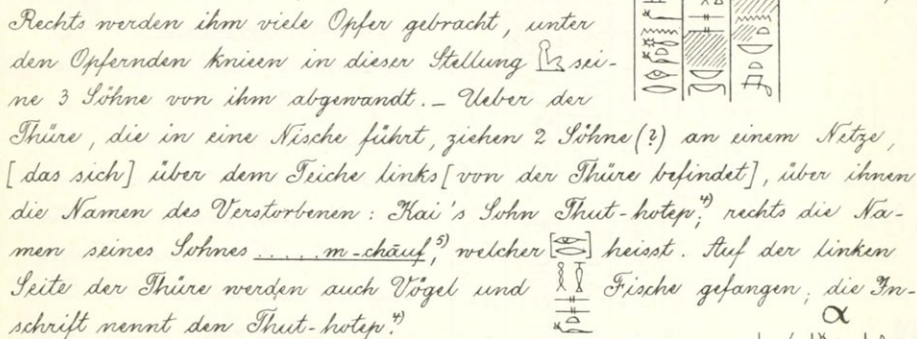 Rechts werden ihm viele Opfer gebracht, unter
den Opfernden knieen in dieser Stellung sei-
ne 3 Söhne von ihm abgewandt. – Ueber der
Thüre, die in eine Nische führt, ziehen 2 Söhne (?) an einem Netze,
[das sich] über dem Teiche links [von der Thüre befindet], über ihnen
die Namen des Verstorbenen: Kai's Sohn Thut-hotep;⁴⁾ rechts die Na-
men seines Sohnes ..... m-chāuf,⁵⁾ welcher [ ] heisst. Auf der linken
Seite der Thüre werden auch Vögel und Fische gefangen; die In-
schrift nennt den Thut-hotep.⁴⁾
α